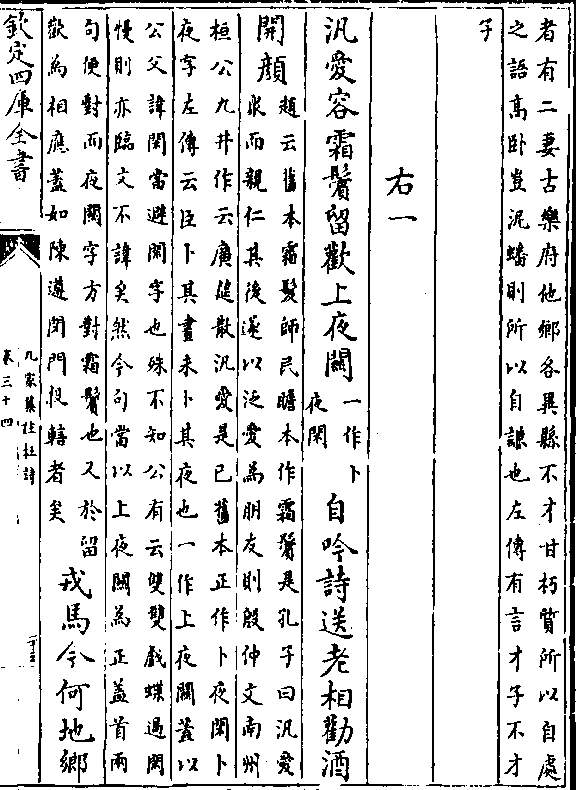 者有二妻古樂府他鄉各異縣不才甘朽質所以自處
之語高卧豈泥蟠則所以自謙也左傳有言才子不才
子
右一
汎愛容霜鬢留歡上夜闗一作卜夜閑自吟詩送老相勸酒
開顔趙云舊本霜髮師民瞻本作霜鬢是孔子曰汎愛
衆而親仁其後遂以泛愛為朋友則殷仲文南州
桓公九井作云廣筵散汎愛是已舊本正作卜夜閑卜
夜字左傳云臣卜其晝未卜其夜也一作上夜關蓋以
公父諱閑當避閑字也殊不知公有云雙雙戲蝶過閑
幔則亦臨文不諱矣然今句當以上夜闗為正蓋首兩
句便對而夜闗字方對霜鬢也又於留
歡為相應蓋如陳遵閉門投轄者矣戎馬今何地鄉
欽定四庫全書
九家集注杜詩
卷三十四
二十三